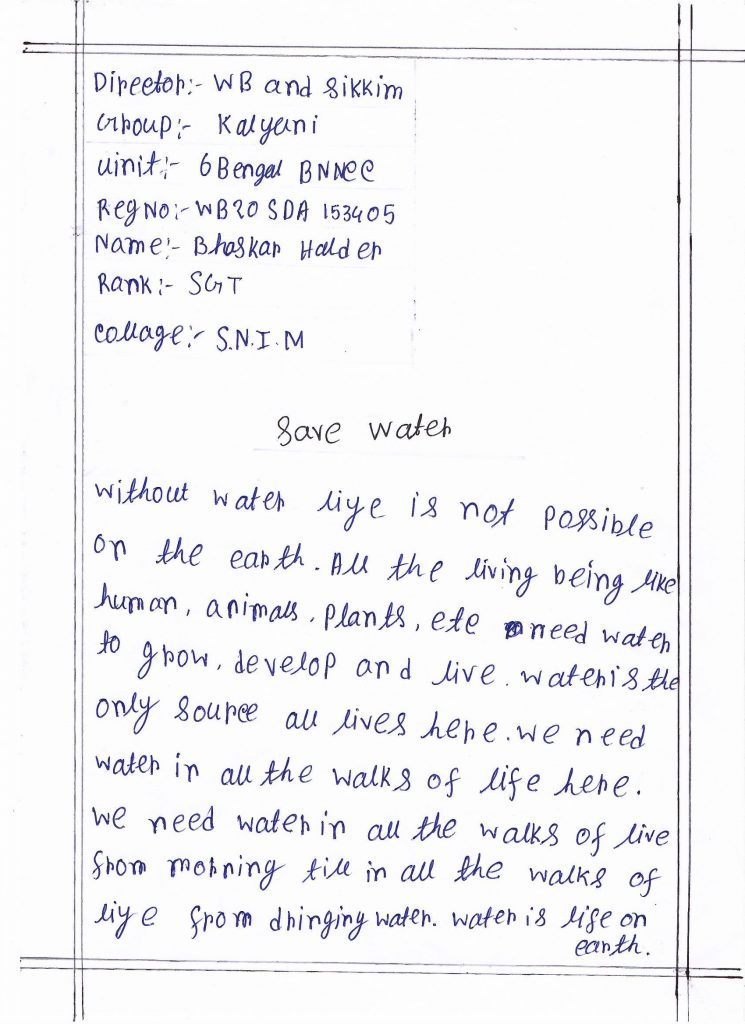 Director:- WB and Sikkim
Group:- Kalyani
uinit:- 6 Bengal BNNCC
Reg No:- WB20 SDA 153405
Name:- Bhaskar Halder
Rank:- SGT
Collage:- S.N.I.M
Save water
without water liye is not possible
on the earth. All the living being like
human, animals, plants, etc need water
to grow, develop and live. water is the
only source all lives here. we need
water in all the walks of life here.
we need water in all the walks of live
from morning till in all the walks of
liye from dringing water. water is life on
earth.